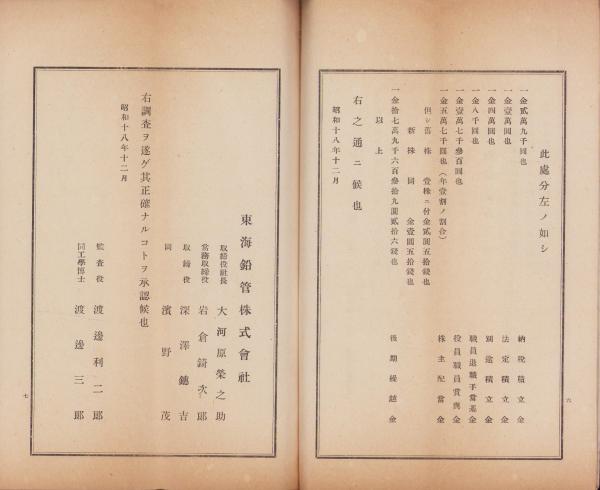 此處分左ノ如シ
一金貳萬九千圓也 納稅積立金
一金壹萬圓也 法定積立金
一金四萬圓也 別途積立金
一金八千圓也 職員退職手當基金
一金壹萬七千參百圓也 役員職員賞與金
一金五萬七千圓也（年壹割ノ割合） 株主配當金
但シ舊株 壹株ニ付金貳圓五拾錢也
新株 同 金壹圓五拾錢也
一金拾七萬九千六百參拾九圓貳拾六錢也 後期繰越金
以上
右之通ニ候也
昭和十八年十二月
六
東海鉛管株式會社
取締役社長 大河原榮之助
常務取締役 岩倉錡次郎
取締役 深澤鏸吉
同 濱野茂
右調査ヲ遂ゲ其正確ナルコトヲ承認候也
昭和十八年十二月
監査役 渡邊利二郎
同工學博士 渡邊三郎
七